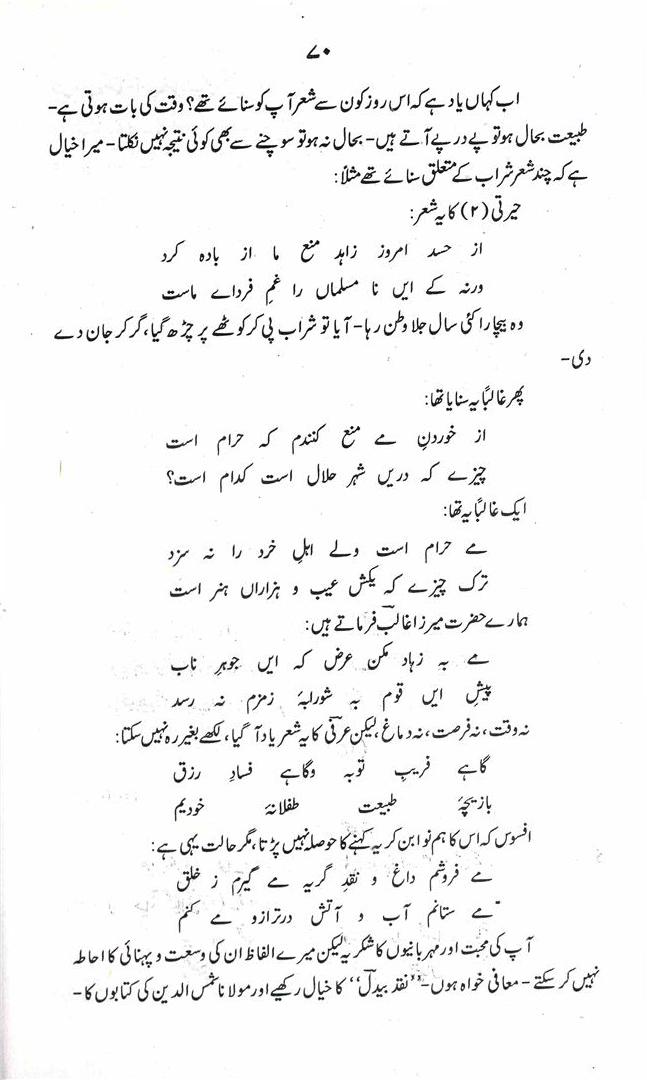 ۷۰
اب کہاں یاد ہے کہ اس روز کون سے شعر آپ کو سنائے تھے؟ وقت کی بات ہوتی ہے۔
طبیعت بحال ہو تو پے در پے آتے ہیں۔ بحال نہ ہو تو سوچنے سے بھی کوئی نتیجہ نہیں نکلتا۔ میرا خیال
ہے کہ چند شعر شراب کے متعلق سنائے تھے مثلاً:
حیرتی (۲) کا یہ شعر:
از حسد امروز زاہد منع ما از بادہ کرد
ورنہ کے ایں نا مسلماں را غمِ فرداے ماست
وہ بیچارا کئی سال جلا وطن رہا۔ آیا تو شراب پی کر کوٹھے پر چڑھ گیا، گر کر جان دے
دی۔
پھر غالباً یہ سنایا تھا:
از خوردنِ مے منع کنندم کہ حرام است
چیزے کہ دریں شہر حلال است کدام است؟
ایک غالباً یہ تھا:
مے حرام است ولے اہلِ خرد را نہ سزد
ترک چیزے کہ یکش عیب و ہزاراں ہنر است
ہمارے حضرت میرزا غالبؔ فرماتے ہیں:
مے بہ زہاد مکن عرض کہ ایں جوہرِ ناب
پیشِ ایں قوم بہ شورابۂ زمزم نہ رسد
نہ وقت، نہ فرصت، نہ دماغ، لیکن عرفیؔ کا یہ شعر یاد آ گیا، لکھے بغیر رہ نہیں سکتا:
گاہے فریبِ توبہ وگاہے فسادِ رزق
بازیچۂ طبیعت طفلانۂ خودیم
افسوس کہ اس کا ہم نوا بن کر یہ کہنے کا حوصلہ نہیں پڑتا، مگر حالت یہی ہے:
مے فروشم داغ و نقدِ گریہ مے گیرم ز خلق
مے ستانم آب و آتش در ترازو مے کنم
آپ کی محبت اور مہربانیوں کا شکریہ لیکن میرے الفاظ ان کی وسعت و پہنائی کا احاطہ
نہیں کر سکتے۔ معافی خواہ ہوں۔ ’’نقد بیدلؔ‘‘ کا خیال رکھیے اور مولانا شمس الدین کی کتابوں کا۔